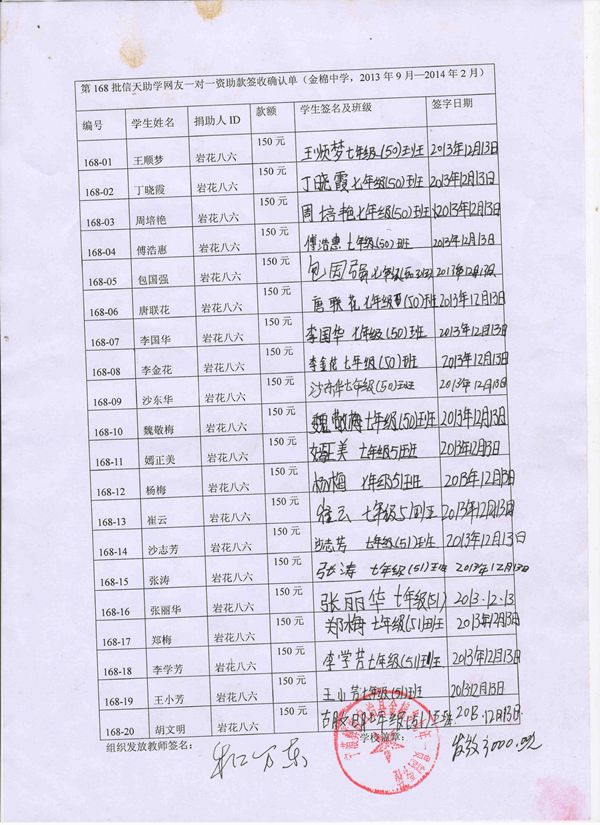 第 168 批信天助学网友一对一资助款签收确认单（金棉中学，2013 年 9 月—2014 年 2 月）
编号 学生姓名 捐助人 ID 款额 学生签名及班级 签字日期
168-01 王顺梦 岩花八六 150 元 王顺梦七年级(50)班 2013年12月13日
168-02 丁晓霞 岩花八六 150 元 丁晓霞七年级(50)班 2013年12月13日
168-03 周培艳 岩花八六 150 元 周培艳七年级(50)班 2013年12月13日
168-04 傅浩惠 岩花八六 150 元 傅浩惠七年级(50)班 2013年12月13日
168-05 包国强 岩花八六 150 元 包国强七年级 2013年12月13日
168-06 唐联花 岩花八六 150 元 唐联花七年级(50)班 2013年12月13日
168-07 李国华 岩花八六 150 元 李国华七年级(50)班 2013年12月13日
168-08 李金花 岩花八六 150 元 李金花七年级(50)班 2013年12月13日
168-09 沙东华 岩花八六 150 元 沙东华七年级(50)班 2013年12月13日
168-10 魏敬梅 岩花八六 150 元 魏敬梅七年级(50)班 2013年12月13日
168-11 嫣正美 岩花八六 150 元 七年级51班 2013年12月13日
168-12 杨梅 岩花八六 150 元 杨梅 七年级51班 2013年12月13日
168-13 崔云 岩花八六 150 元 崔云 七年级51班 2013年12月13日
168-14 沙志芳 岩花八六 150 元 沙志芳 七年级(51)班 2013年12月13日
168-15 张涛 岩花八六 150 元 张涛 七年级(51)班 2013年12月13日
168-16 张丽华 岩花八六 150 元 张丽华 七年级(51) 2013.12.13
168-17 郑梅 岩花八六 150 元 郑梅七年级(51)班 2013年12月13日
168-18 李学芳 岩花八六 150 元 李学芳七年级(51)班 2013年12月13日
168-19 王小芳 岩花八六 150 元 王小芳七年级(51)班 2013年12月13日
168-20 胡文明 岩花八六 150 元 七年级(51)班 2013.12月13日
组织发放教师签名： 学校盖章：
3000.00